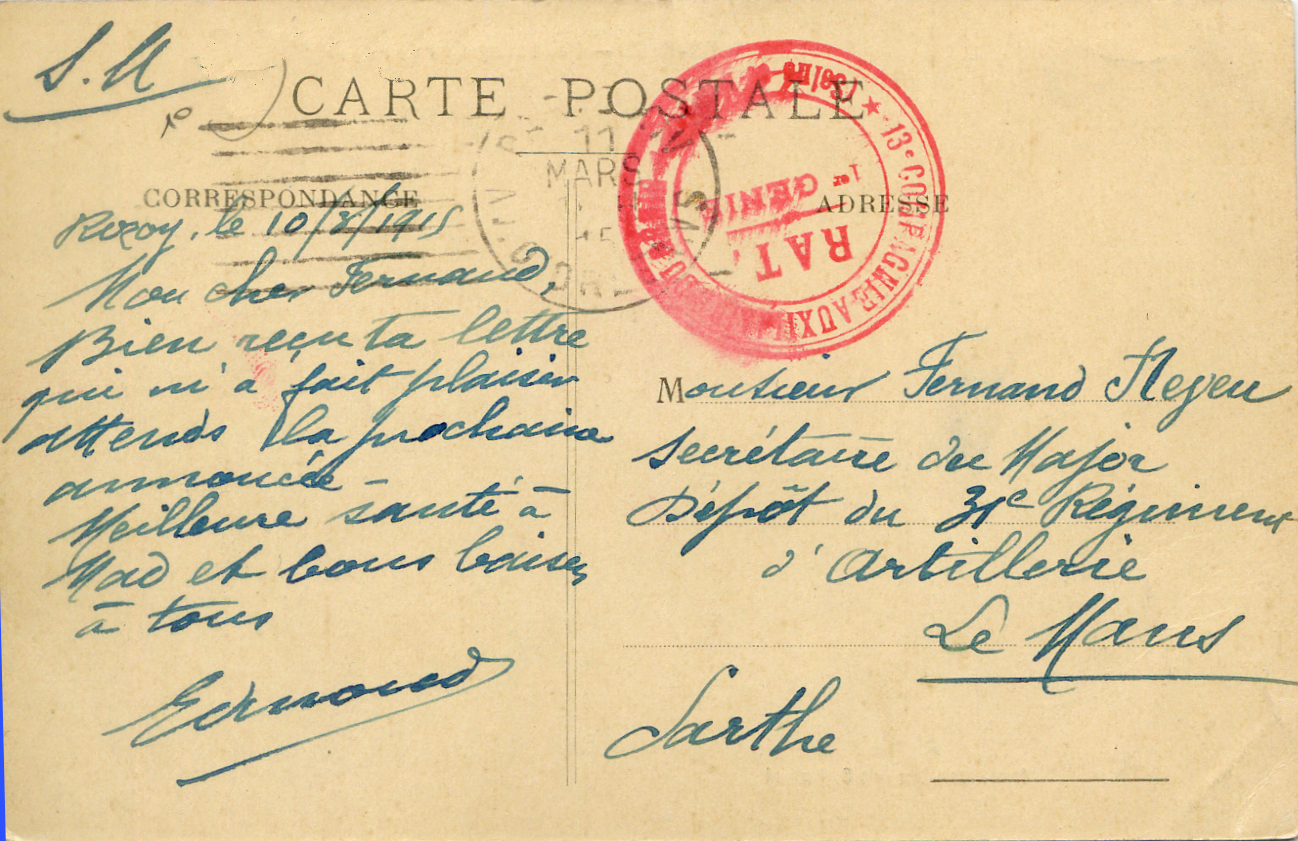 S. M
CARTE POSTALE
CORRESPONDANCE
ADRESSE
11
MARS
15
13e COMPAGNIE AUXI
1er GÉNIE
R A T
Rozoy, le 10/3/1915
Mon cher Fernand,
Bien reçu ta lettre
qui m'a fait plaisir
attends la prochaine
annoncée -
Meilleure santé à
Mad et bons baisers
à tous
Edmond
Monsieur Fernand
Secrétaire du Major
Dépôt du 31e Régiment
d'Artillerie
Le Mans
Sarthe